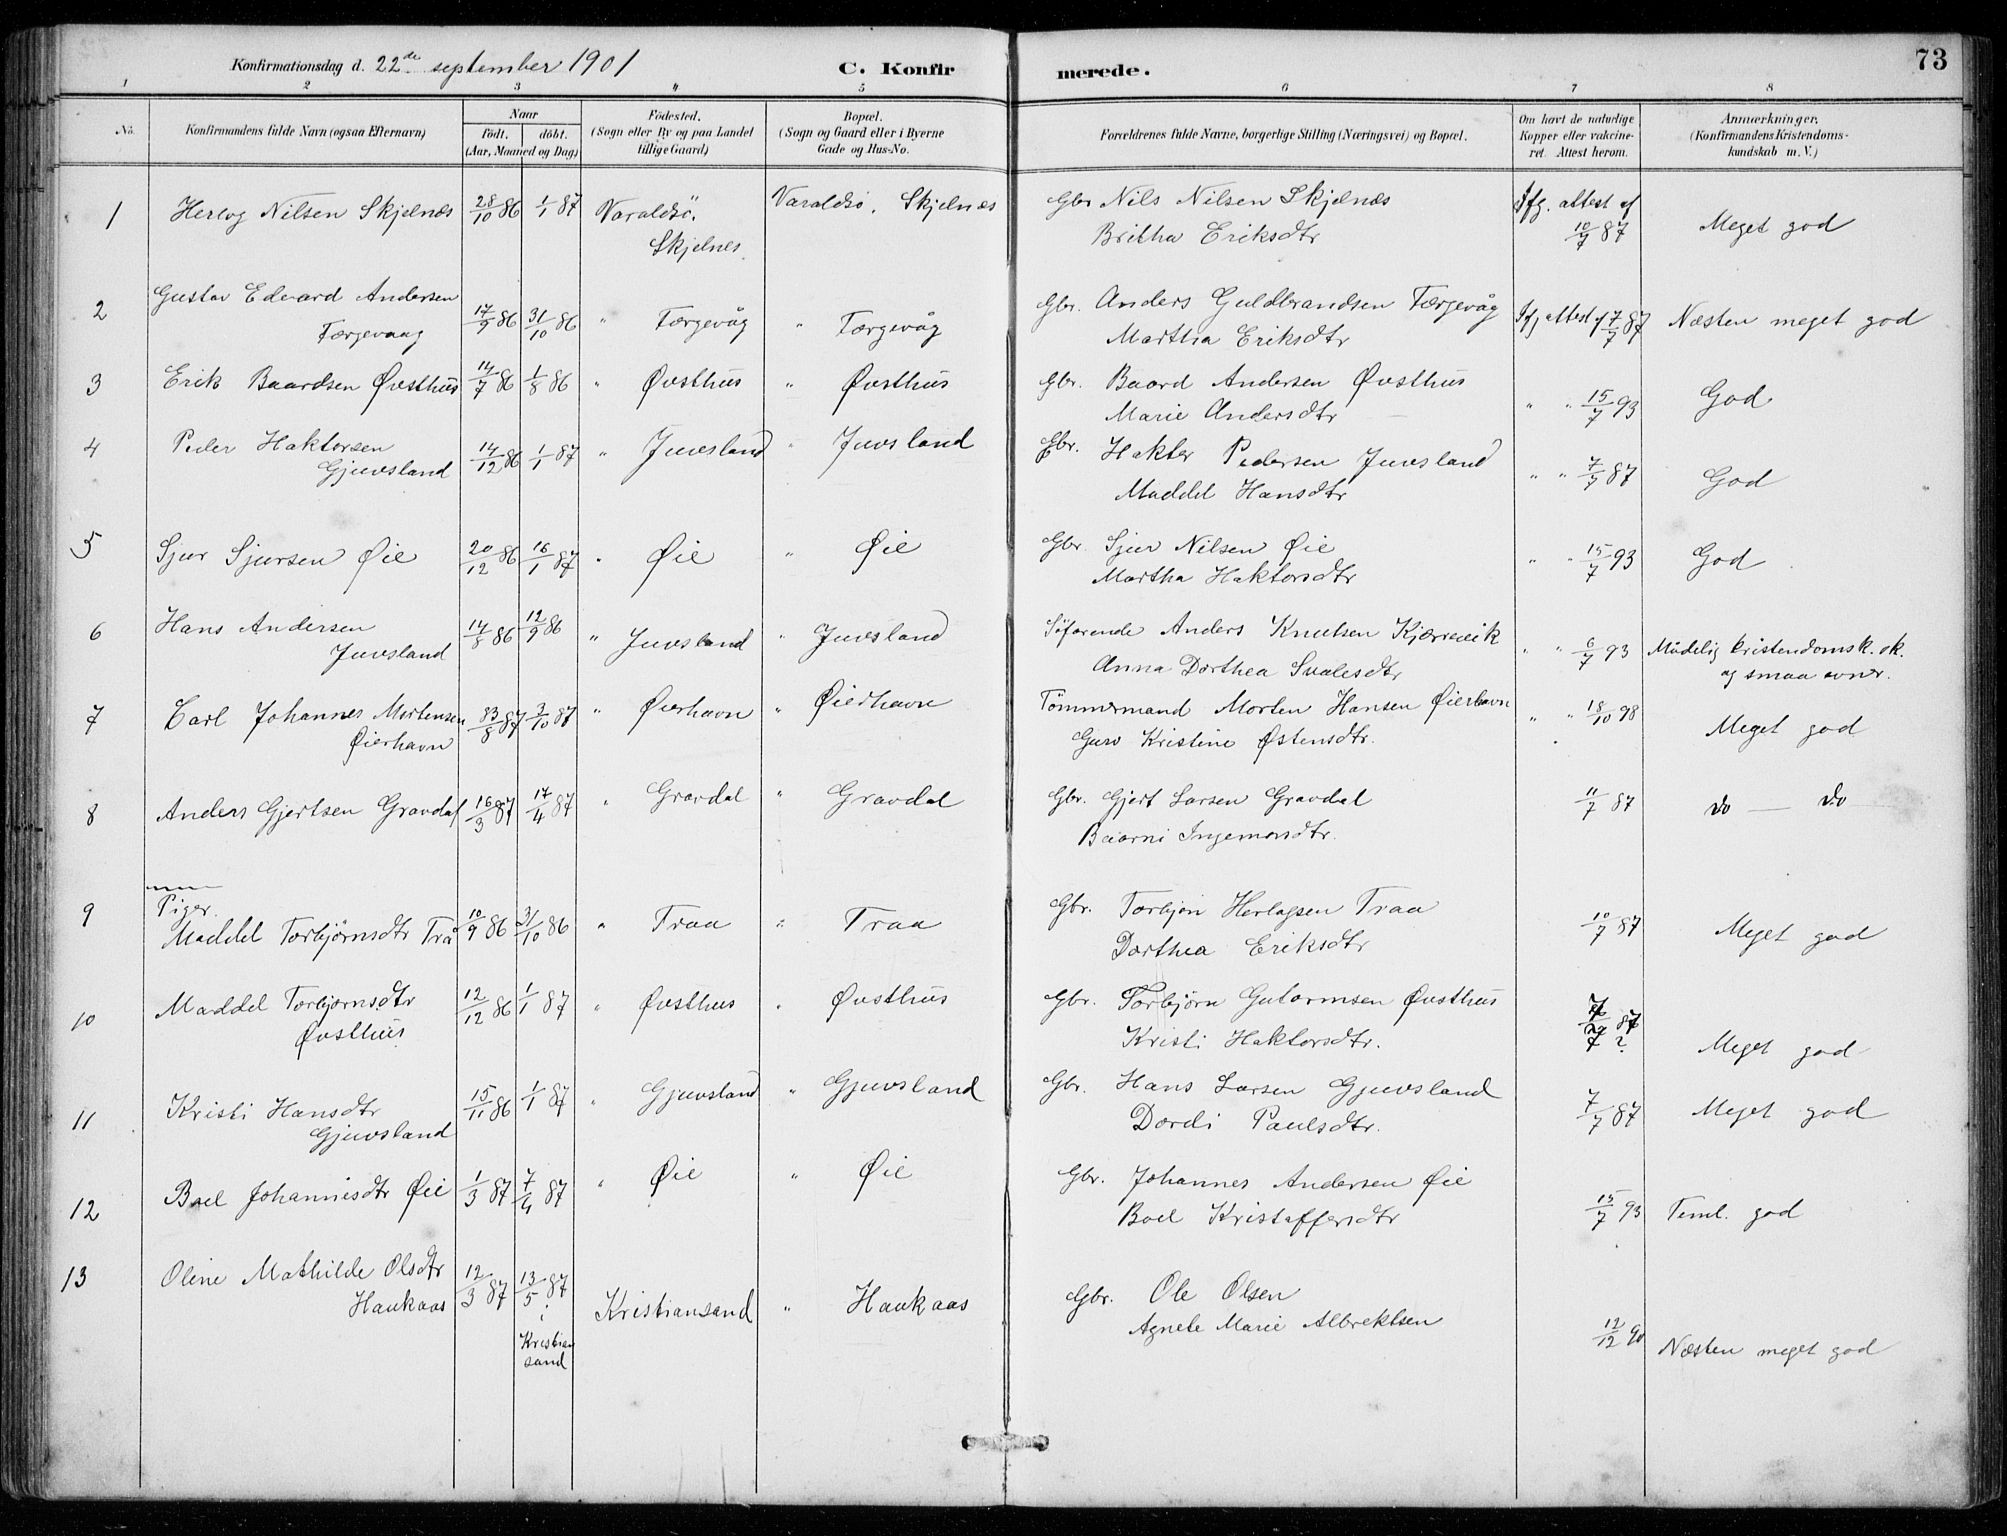 73
Konfirmationsdag d. 22de september 1901 C. Konfirmerede.
1 2 3 4 5 6 7 8
No. Konfirmandens fulde Navn (ogsaa Efternavn) Naar födt. döbt. (Aar, Maaned og Dag) Födested. (Sogn eller By og paa Landet tillige Gaard) Bopæl. (Sogn og Gaard eller i Byerne Gade og Hus-No. Forældrenes fulde Navne, borgerlige Stilling (Næringsvei) og Bopæl. Om havt de naturlige Kopper eller vakcineret. Attest herom. Anmærkninger. (Konfirmandens Kristendomskundskab m. V.)
1 Herlog Nilsen Skjelnæs 28/10 86 1/1 87 Varaldsö, Skjelnes. Varaldsö, Skjelnæs Gbr Nils Nilsen Skjelnæs
Britha Eriksdtr Ifg. attest af 10/7 87 Meget god
2 Gustav Edvard Andersen
Færgevaag 17/9 86 31/10 86 " Færgevåg " Færgevåg Gbr. Anders Guldbrandsen Færgevåg
Martha Eriksdtr Ifg attest af 7/7 87 Næsten meget god
3 Erik Baardsen Øvsthus 14/7 86 1/8 86 " Øvsthus " Øvsthus Gbr. Baard Andersen Øvsthus
Marie Andersdtr " " 15/7 93 God
4 Peder Haktorsen
Gjuvsland 14/12 86 1/1 87 " Juvsland " Juvsland Gbr. Haktor Pedersen Juvsland
Maddel Hansdtr " " 7/7 87 God
5 Sjur Sjursen Øie 20/12 86 16/1 87 " Øie " Øie Gbr. Sjur Nilsen Øie
Martha Haktorsdtr " " 15/7 93 God
6 Hans Andersen
Juvsland 14/8 86 12/9 86 " Juvsland " Juvsland Söfarende Anders Knutsen Kjærrevik
Anna Dorthea Svalesdtr " " 6/7 93 Mådelig kristendomsk.
og smaa evner.
7 Carl Johannes Mortensen
Øierhavn 87 3/10 87 " Øierhavn " Øierhavn Tömmermand Morten Hansen Øierhavn
Guro Kristine Østensdtr. " " 18/10 98 Meget god
8 Anders Gjertsen Gravdal 16/3 87 17/4 87 " Gravdal " Gravdal Gbr. Gjert Larsen Gravdal
Baarni Ingemorsdtr. 11/7 87 do — do
Piger.
9 Maddel Torbjørnsdtr Traa 10/9 86 31/10 86 " Traa " Traa Gbr. Torbjön Herlogsen Traa
Dorthea Eriksdtr 10/7 87 Meget god
10 Maddel Torbjørnsdtr
Øvsthus 12/12 86 1/1 87 " Øvsthus " Øvsthus Gbr. Torbjörn Gutormsen Øvsthus
Kristi Haktorsdtr. 87 ? Meget god
11 Kristi Hansdtr
Gjuvsland 15/11 86 1/1 87 " Gjuvsland " Gjuvsland Gbr. Hans Larsen Gjuvsland
Dordi Paulsdtr. 7/7 87 Meget god
12 Boel Johannesdtr Øie 1/3 87 7/4 87 " Øie " Øie Gbr. Johannes Andersen Øie
Boel Kristoffersdtr 15/7 93 Teml. god
13 Oline Mathilde Olsdtr
Haukaas 12/3 87 13/5 87 i Kristiansand Kristiansand " Haukaas Gbr. Ole Olsen
Agnete Marie Albrektsen 12/12 90 Næsten meget god